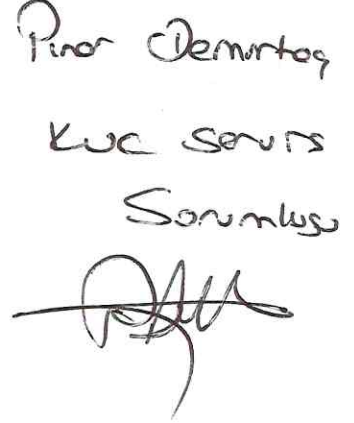 Pınar Demirtaş
Kuc Servis
Sorumlusu